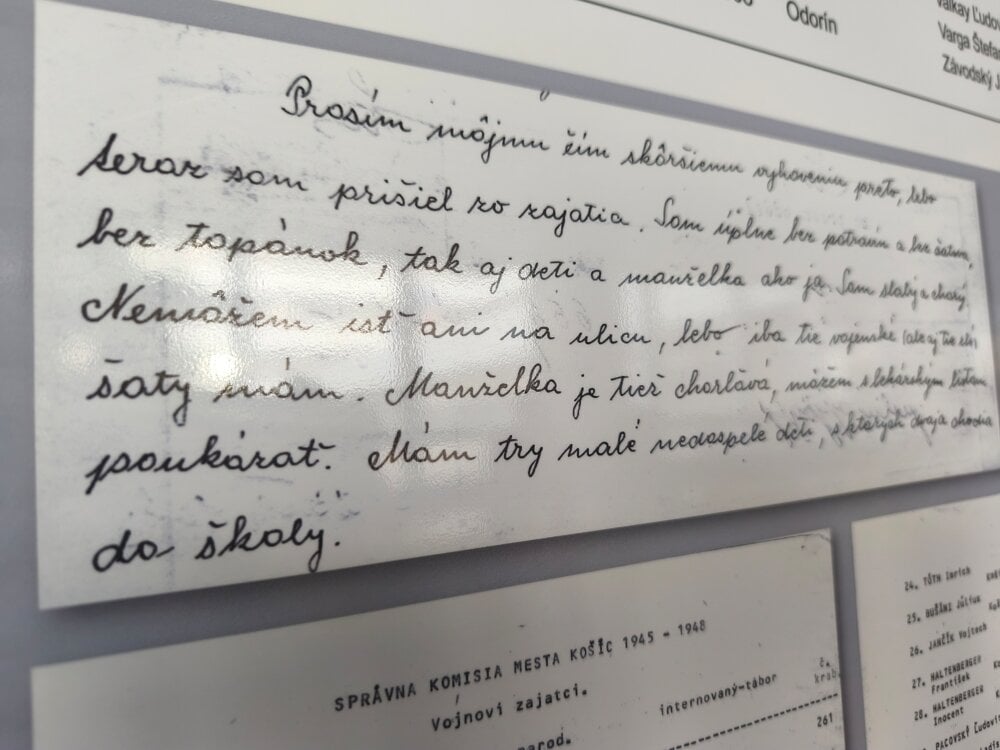 Odorín
Valkay Ľudov
Varga Štefa
Závodský J
Prosím môjmu čím skôršiemu vyhoveniu preto, lebo
teraz som prišiel zo zajatia. Som úplne bez potravín a bez šatum,
bez topánok, tak aj deti a manželka ako ja. Som slabý a chorý.
Nemôžem isť ani na ulicu, lebo iba tie vojenské (ale aj tie zlé)
šaty mám. Manželka je tiež chorlavá, môžem s lekárskym listom
poukázať. Mám try malé nedospelé deti, z ktorých dvaja chodia
do školy.
SPRÁVNA KOMISIA MESTA KOŠÍC 1945 - 1948
Vojnoví zajatci.
narod.
internovaný-tábor
č.
krab.
261
24. TÓTH Imrich
25. BUŠÁNI Július
26. JANČÍK Vojtech
27. HALTENBERGER
František
28. HALTENBERGER
Inocent
PACOVSKÝ Ľudovít